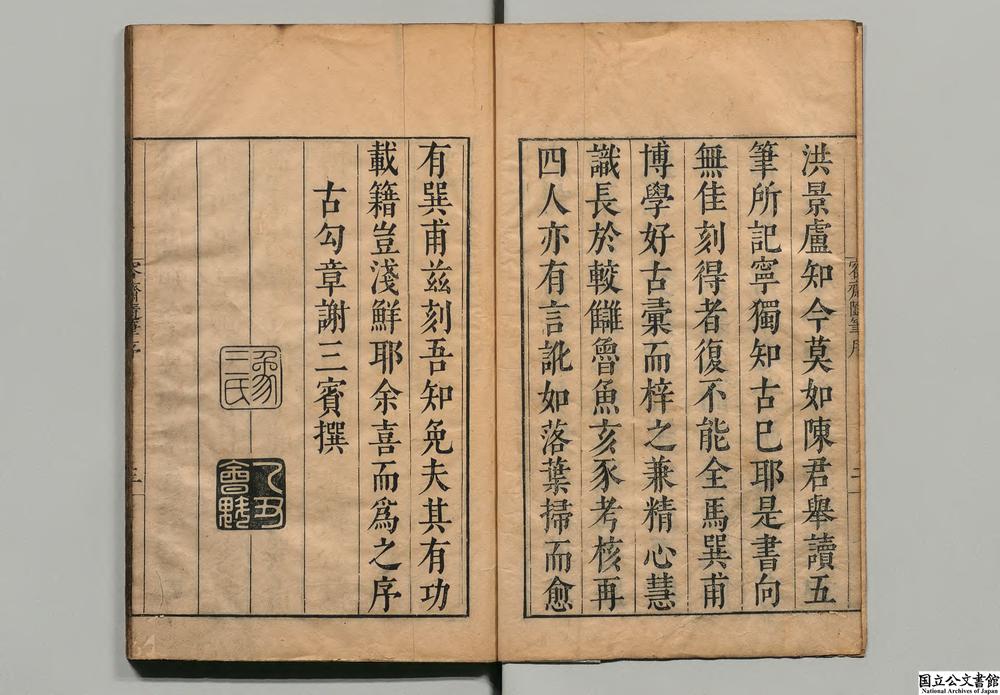 洪景盧知今莫如陳君舉讀五
筆所記寧獨知古已耶是書向
無佳刻得者復不能全馬巽甫
博學好古彙而梓之兼精心慧
識長於較讎魯魚亥豕考核再
四人亦有言訛如落葉掃而愈
有巽甫兹刻吾知免夫其有功
載籍豈淺鮮耶余喜而爲之序
古勾章謝三賓撰
乙丑
會魁
容齋隨筆序
国立公文書館
National Archives of Japan